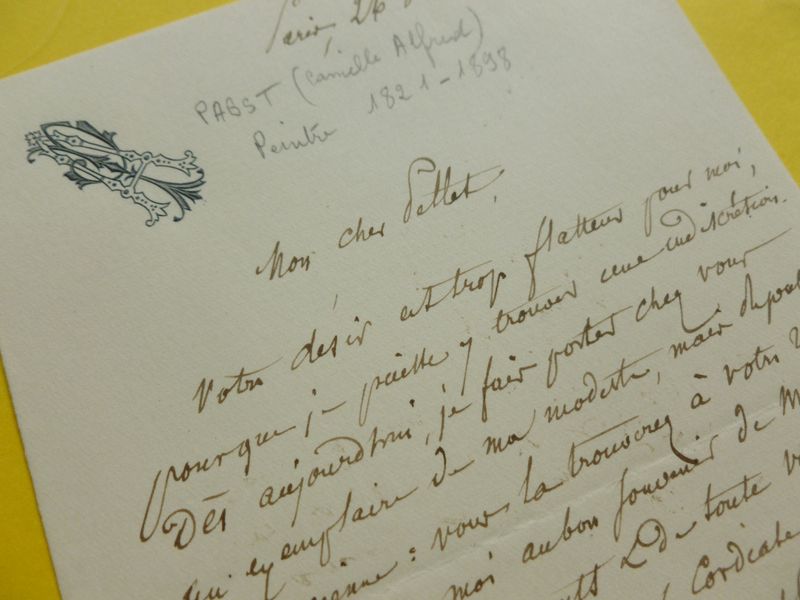 Paris, 26
PABST (Camille Alfred)
Peintre 1821-1898
Mon cher Pellet,
Votre désir est trop flatteur pour moi,
pour que je puisse y trouver une indiscrétion.
Dès aujourd'hui, je fais porter chez vous
un exemplaire de ma modeste, mais
: vous la trouverez à votre
moi au bon souvenir de M
de toute
Cordiale